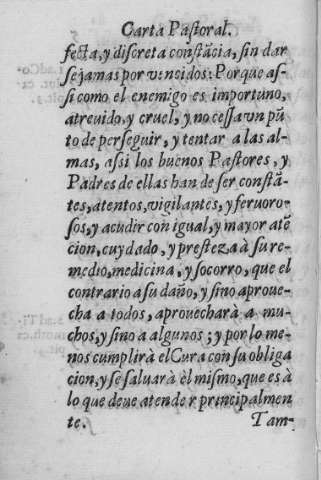 Carta Pastoral.
fecta, y discreta constãcia, sin dar
se jamas por vencidos: Porque as-
si como el enemigo es importuno,
atreuido, y cruel, y no cessa vn pũ
to de perseguir, y tentar a las al-
mas, assi los buenos Pastores, y
Padres de ellas han de ser constã-
tes, atentos, vigilantes, y feruoro-
sos, y acudir con igual, y mayor atẽ
cion, cuydado, y presteza à su re-
medio, medicina, y socorro, que el
contrario a su daño, y sino aproue-
cha a todos, aprouecharà a mu-
chos, y sino à algunos; y por lo me-
nos cumplirà el Cura con su obliga
cion, y se saluarà èl mismo, que es à
lo que deue atender principalmen
te. Tam-